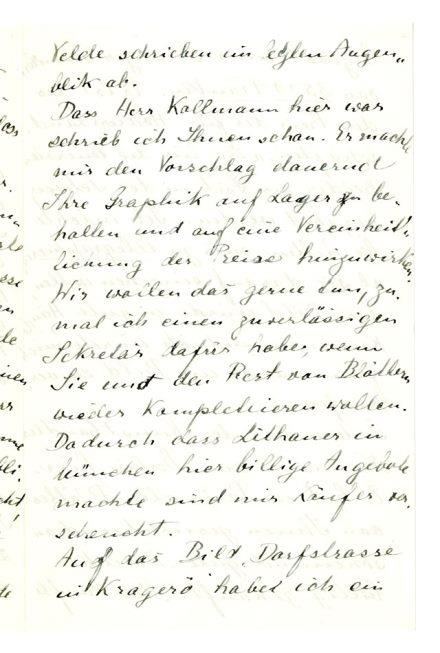 Velde schrieben im letzten Augen„
blik ab.
Dass Herr Kollmann hier war
schrieb ich Ihnen schon. Er machte
mir den Vorschlag dauernd
Ihre Graphik auf Lager zu be-
halten und auf eine Vereinheit„
lichung der Preise hinzuwirken.
Wir wollen das gerne tun, zu„
mal ich einen zuverlässigen
Sekretär dafür habe, wenn
Sie uns den Rest von Blättern
wieder kompletieren wollen.
Dadurch dass Lithauer in
München hier billige Angebote
machte sind mir Käufer ver„
scheucht.
Auf das Bild „Dorfstrasse
in Kragerö" habe ich ein